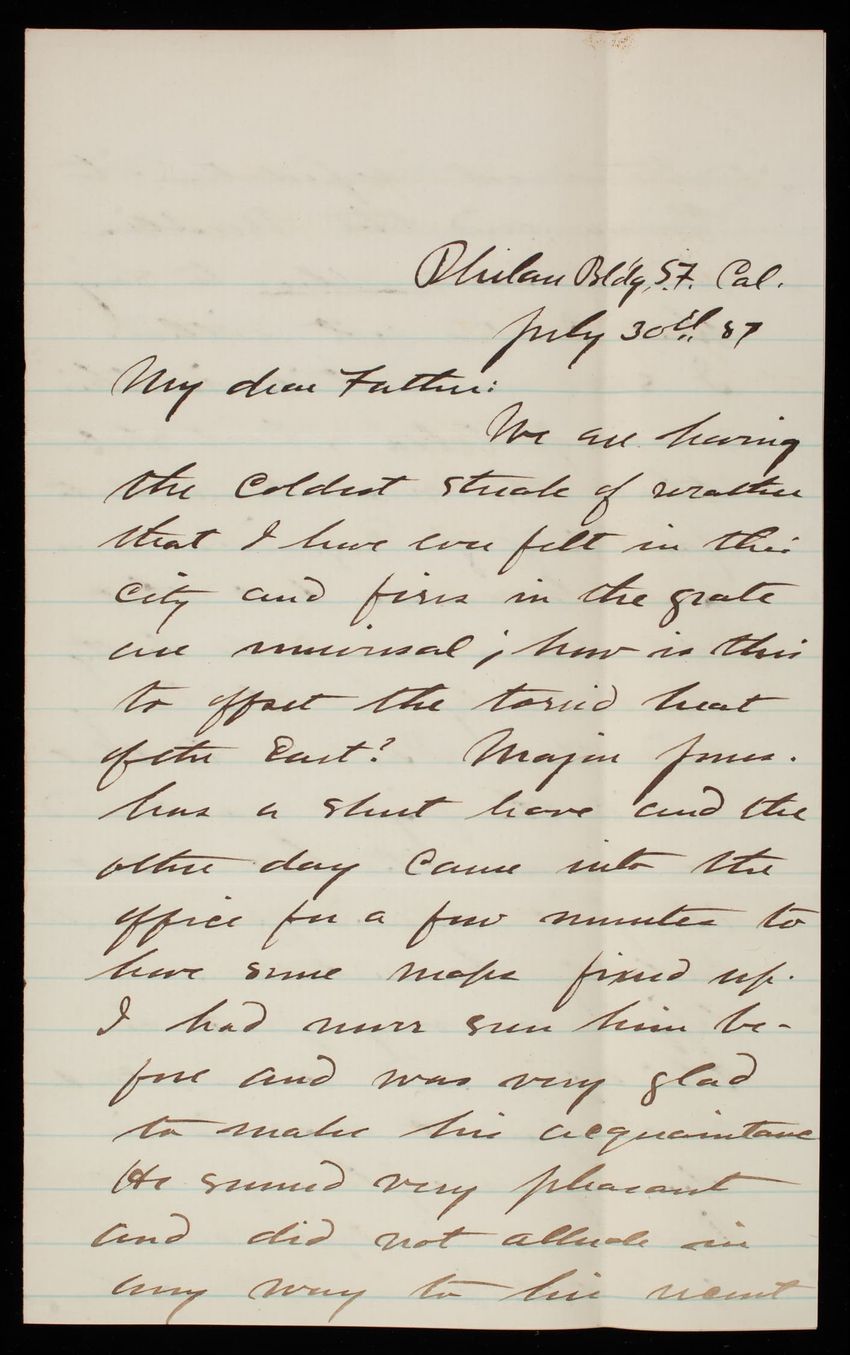 Phelan Bld'g, S.F. Cal.
July 30th 87
My dear Father:
We are having
the coldest streak of weather
that I have ever felt in this
city and fires in the grate
are universal; how is this
to offset the torrid heat
of the East? Major Jones.
has a short leave and the
other day came into the
office for a few minutes to
have some maps fixed up.
I had never seen him be-
fore and was very glad
to make his acquaintance
He seemed very pleasant
and did not allude in
any way to his recent